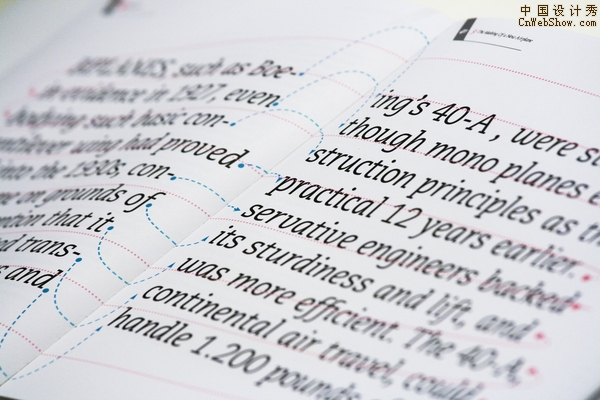 中国设计秀
CnWebShow.com
BIPLANES, such as Boe-
in evidence in 1927, even
such basic con-
wing had proved
the 1930s, con-
on grounds of
that it
trans-
and
ing's 40-A, were
though mono planes
struction principles as
practical 12 years earlier.
servative engineers backed
its sturdiness and lift, and
was more efficient. The 40-A,
continental air travel, could
handle 1.200 pounds